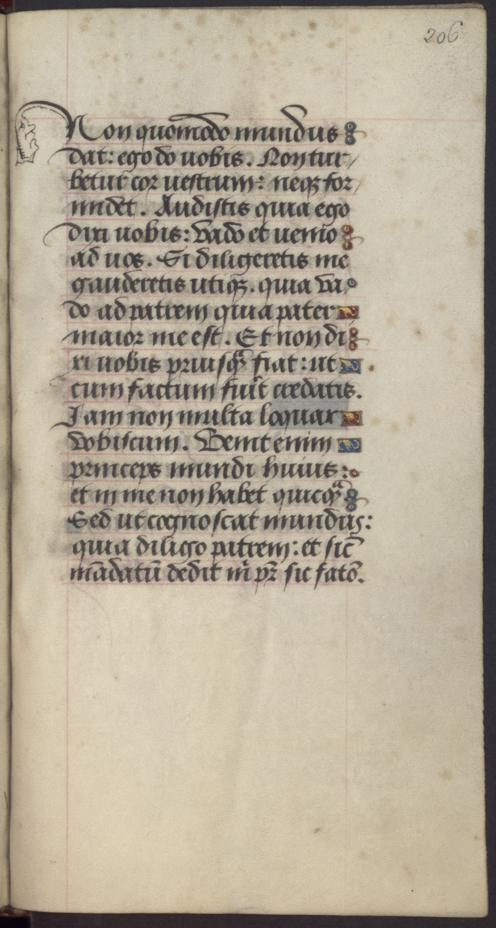 206
Non quomōdo mundus
dat: ego do uobis. Non tur/
betur cor uestrum: neqꝫ for/
midet. Audistis quia ego
dixi uobis: Vado et uenio
ad uos. Si diligeretis me
gauderetis utiqꝫ. quia va
do ad patrem quia pater
maior me est. Et non di
xi uobis priusq̄ fiat: ut
cum factum fuīt credatis.
Jam non multa loquar
vobiscum. Venit enim
princeps mundi huius:
et in me non habet quicq̄
Sed ut cognoscat mundus:
quia diligo patrem: et sic̄
mādatū dedit m̄ pr̄ sic fatō.